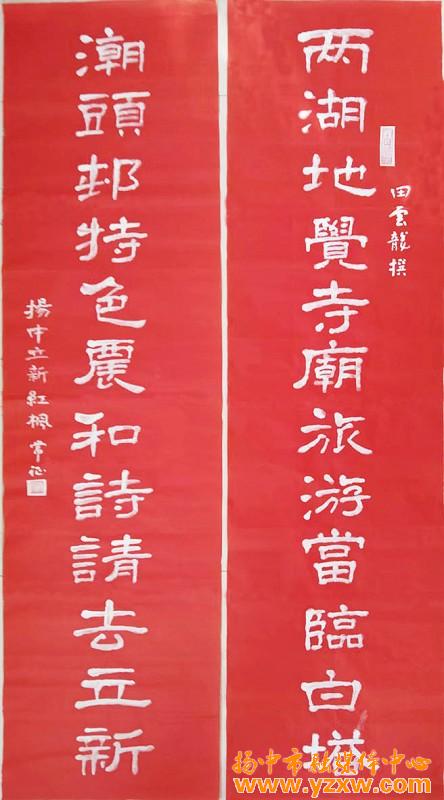 两湖地覺寺廟旅游當臨白塔
田雲龍撰
潮頭邨特色農和詩請去立新
揚中立新紅楓常征
扬中市融媒体中心
www.yzxw.com